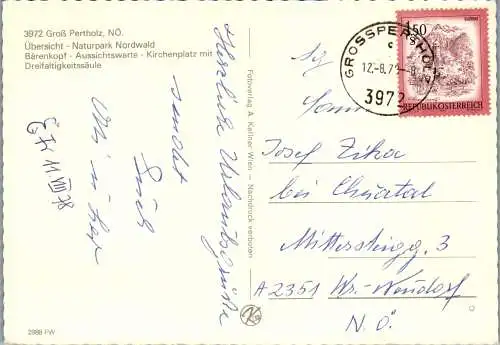 3972 Groß Pertholz, NÖ.
Übersicht - Naturpark Nordwald
Bärenkopf - Aussichtswarte - Kirchenplatz mit
Dreifaltigkeitssäule
Herzliche Urlaubsgrüße
sendet
Euch
11. VIII 78
Fotoverlag A. Kellner Wien - Nachdruck verboten
2988 FW
GROSSPERTHOLZ
c
3972
150
REPUBLIK ÖSTERREICH
Josef Zika
bei
3
A 2351 Wr. Neudorf
N. Ö.